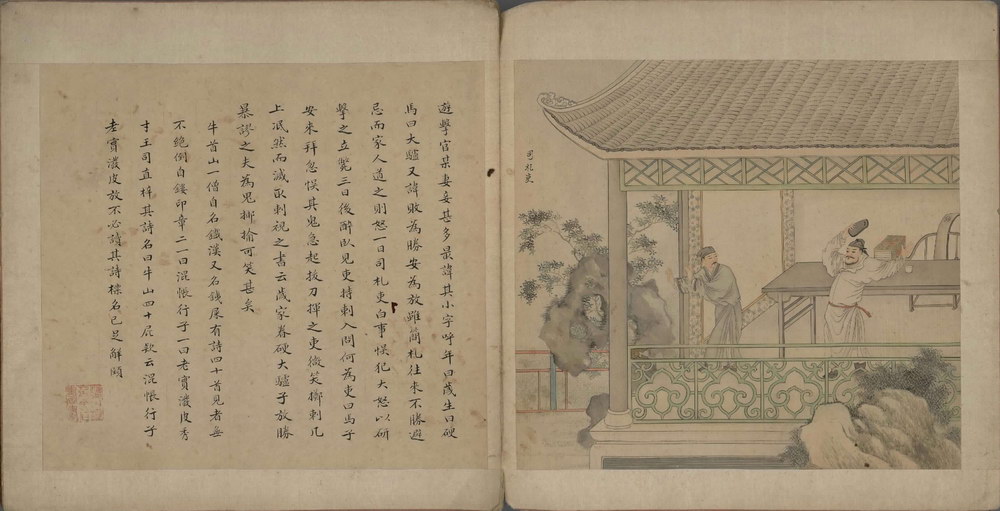 司札吏
遊擊官某妻妾甚多最諱其小字呼年曰歲生曰硬
馬曰大驢又諱敗為勝安為放雖簡札往來不勝避
忌而家人道之則怒一日司札吏白事悮犯大怒以硏
擊之立斃三日後醉臥見吏持刺入問何為吏曰馬子
安來拜忽悮其鬼急起拔刀揮之吏微笑擲刺几
上冺然而滅取刺視之書云歲家眷硬大驢子放勝
暴謬之夫為鬼揶揄可笑甚矣
牛首山一僧自名鐵漢又名鐵屎有詩四十首見者無
不絕倒自鏤印章二一曰混帳行子一曰老實潑皮秀
才王司直梓其詩名曰牛山四十屁款云混帳行子
老實潑皮放不必讀其詩標名已足解頤